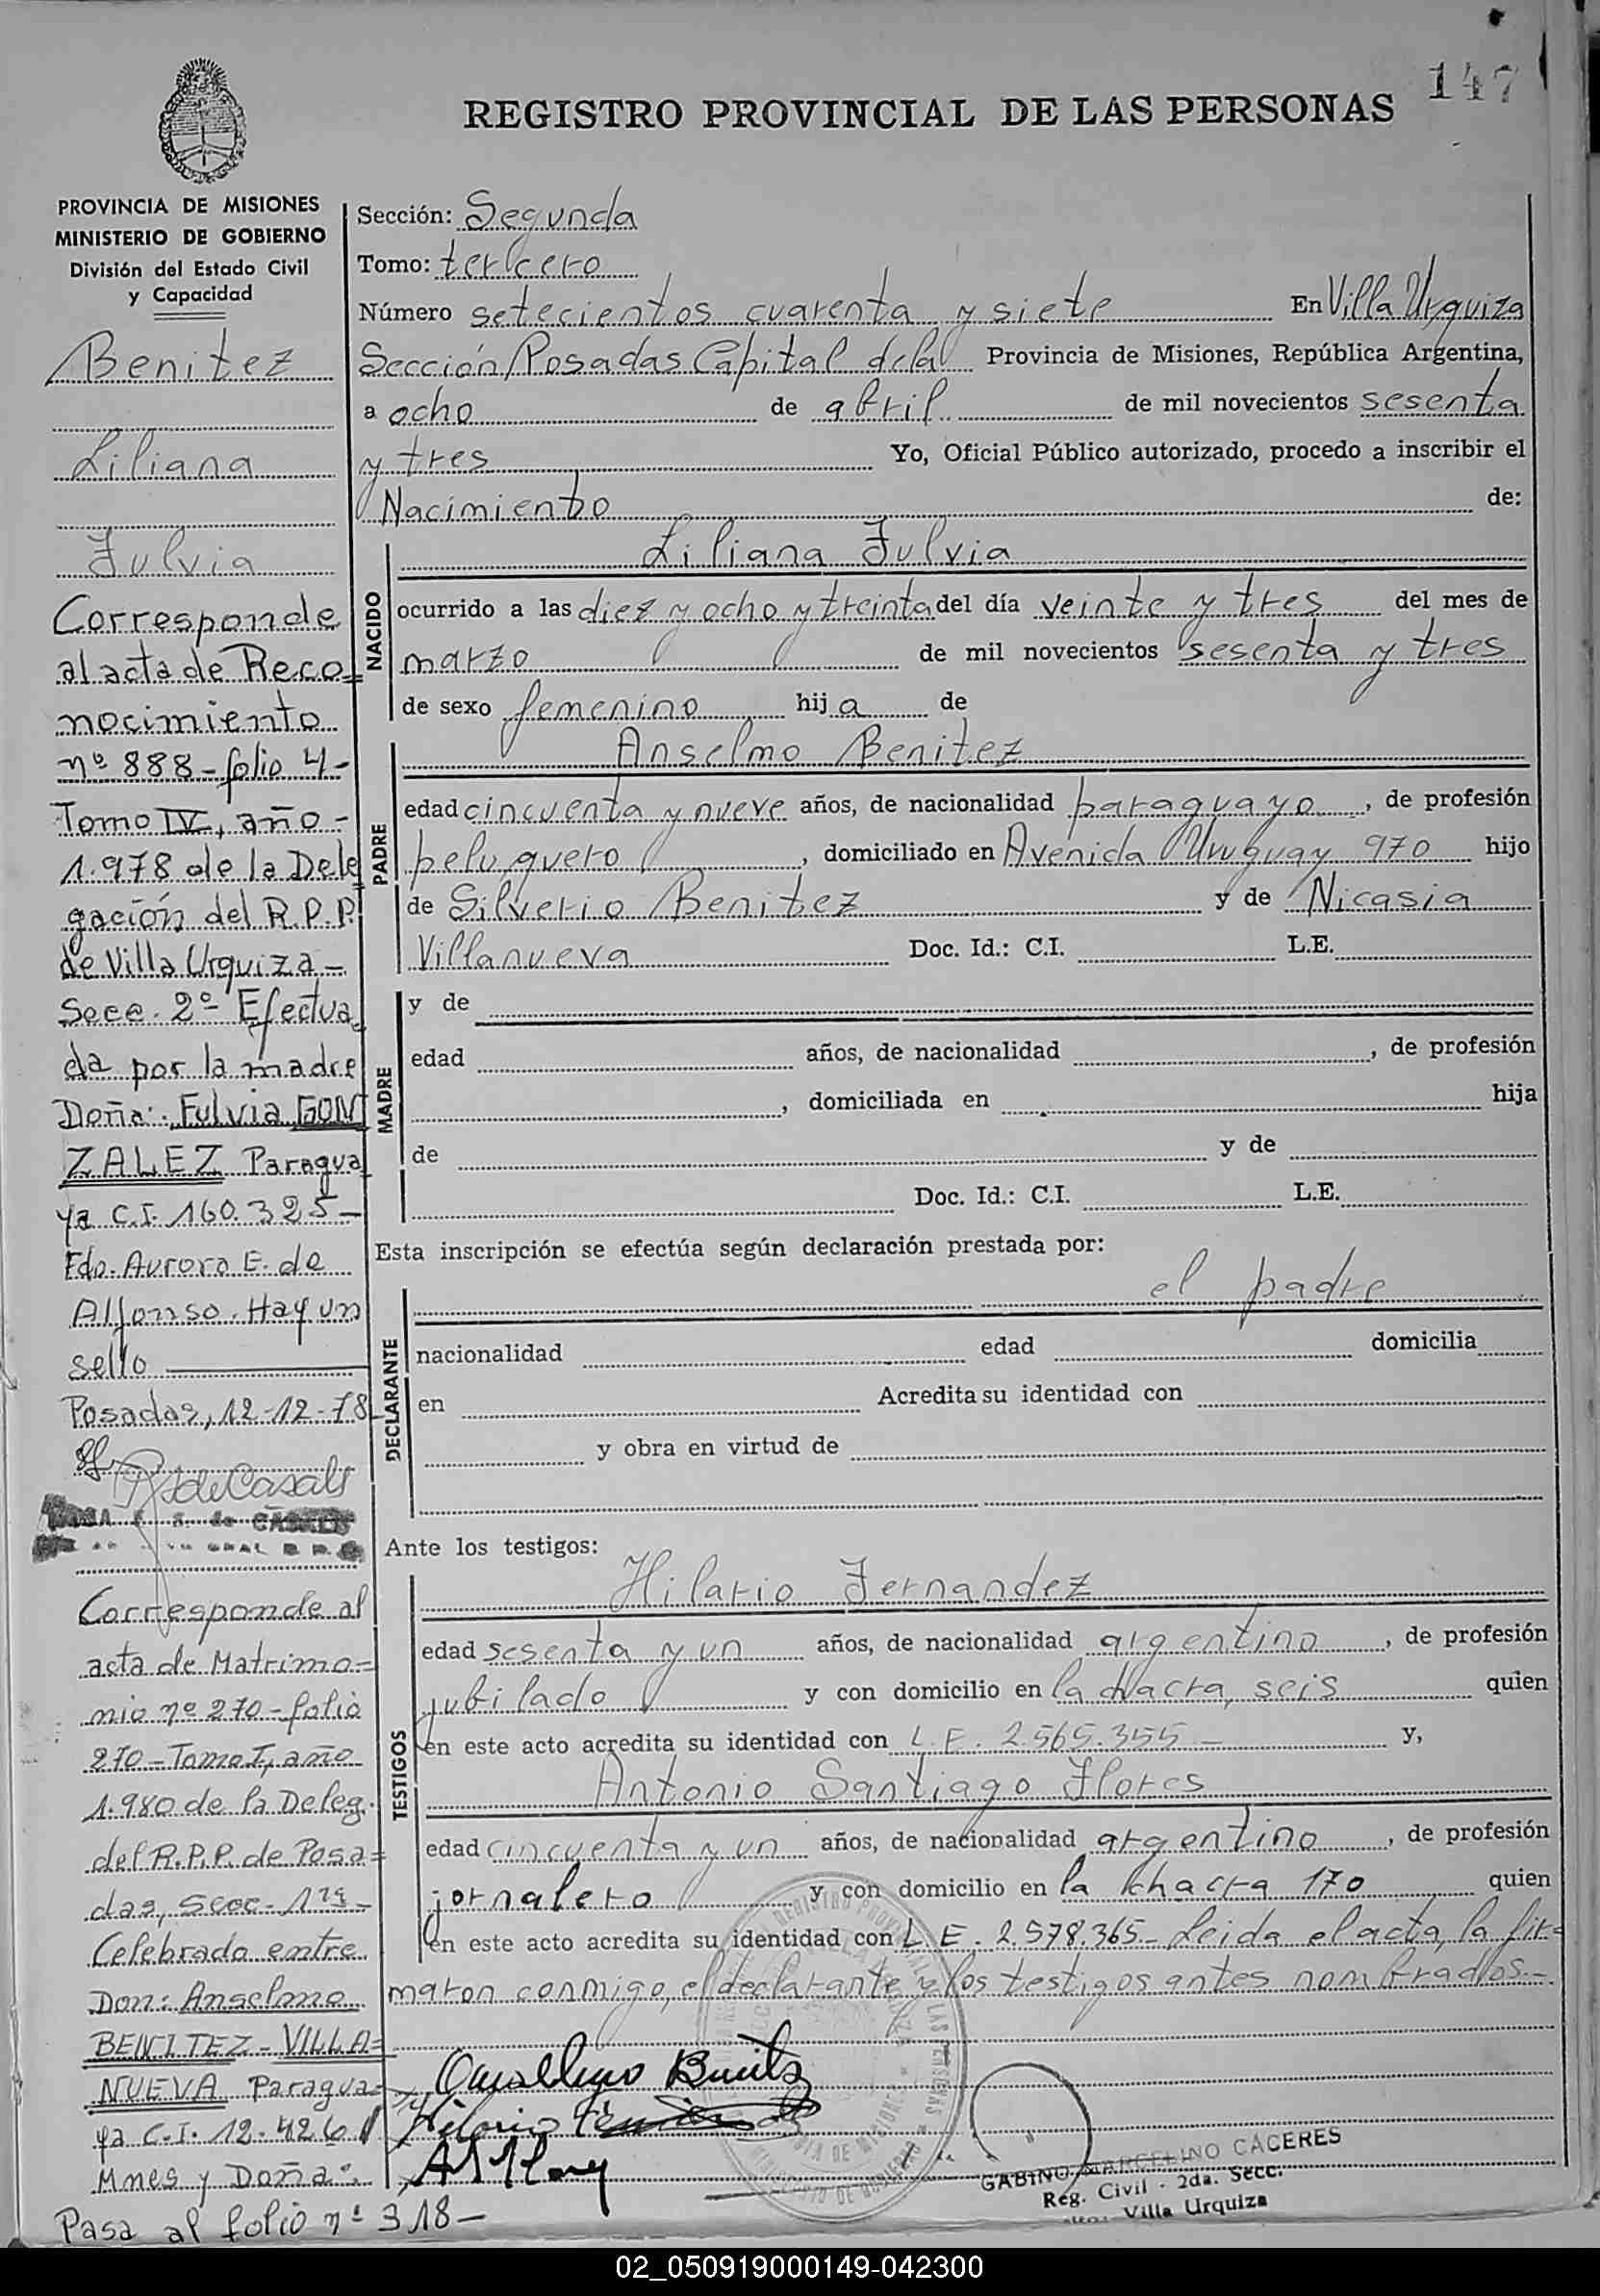 147
REGISTRO PROVINCIAL DE LAS PERSONAS
PROVINCIA DE MISIONES
MINISTERIO DE GOBIERNO
División del Estado Civil
y Capacidad
Benitez
Liliana
Fulvia
Corresponde
al acta de Reco=
nocimiento
nº 888-folio 4-
Tomo IV, año-
1.978 de la Dele
gación del R.P.P.
de Villa Urquiza-
Secc. 2º- Efectua
da por la madre
Doña: Fulvia GON
ZALEZ Paragua
ya C.I. 160.325-
Fdo. Aurora E. de
Alfonso. Hay un
sello
Posadas, 12-12-78
de Casals
de CASALS
Corresponde al
acta de Matrimo=
nio nº 270-folio
270-Tomo I, año
1.980 de la Deleg.
del R.P.P. de Posa=
das, Secc. 1ra-
Celebrado entre
Don: Anselmo
BENITEZ-VILLA=
NUEVA Paragua=
ya C.I. 12.426
Mnes y Doña:
Pasa al folio nº 318-
Sección: Segunda
Tomo: tercero
Número setecientos cuarenta y siete En Villa Urquiza
Sección Posadas Capital de la Provincia de Misiones, República Argentina,
a ocho de abril de mil novecientos sesenta
y tres Yo, Oficial Público autorizado, procedo a inscribir el
Nacimiento de:
NACIDO
Liliana Fulvia
ocurrido a las diez y ocho y treinta del día veinte y tres del mes de
marzo de mil novecientos sesenta y tres
de sexo femenino hija de
PADRE
Anselmo Benitez
edad cincuenta y nueve años, de nacionalidad paraguayo, de profesión
peluquero, domiciliado en Avenida Uruguay 970 hijo
de Silverio Benitez y de Nicasia
Villanueva Doc. Id.: C.I. L.E.
MADRE
y de
edad años, de nacionalidad , de profesión
, domiciliada en hija
de y de
Doc. Id.: C.I. L.E.
Esta inscripción se efectúa según declaración prestada por:
DECLARANTE
el padre
nacionalidad edad domicilia
en Acredita su identidad con
y obra en virtud de
Ante los testigos:
TESTIGOS
Hilario Fernandez
edad sesenta y un años, de nacionalidad argentino, de profesión
jubilado y con domicilio en la chacra, seis quien
en este acto acredita su identidad con L.E. 2.565.355- y,
Antonio Santiago Flores
edad cincuenta y un años, de nacionalidad argentino, de profesión
jornalero y con domicilio en la chacra 170 quien
en este acto acredita su identidad con L.E. 2.578.365- Leida el acta, la fir=
maron conmigo, el declarante y los testigos antes nombrados.-
Benitz
Hilario
GABINO MARCELINO CACERES
Reg. Civil - 2da. Secc.
Villa Urquiza
02_050919000149-042300